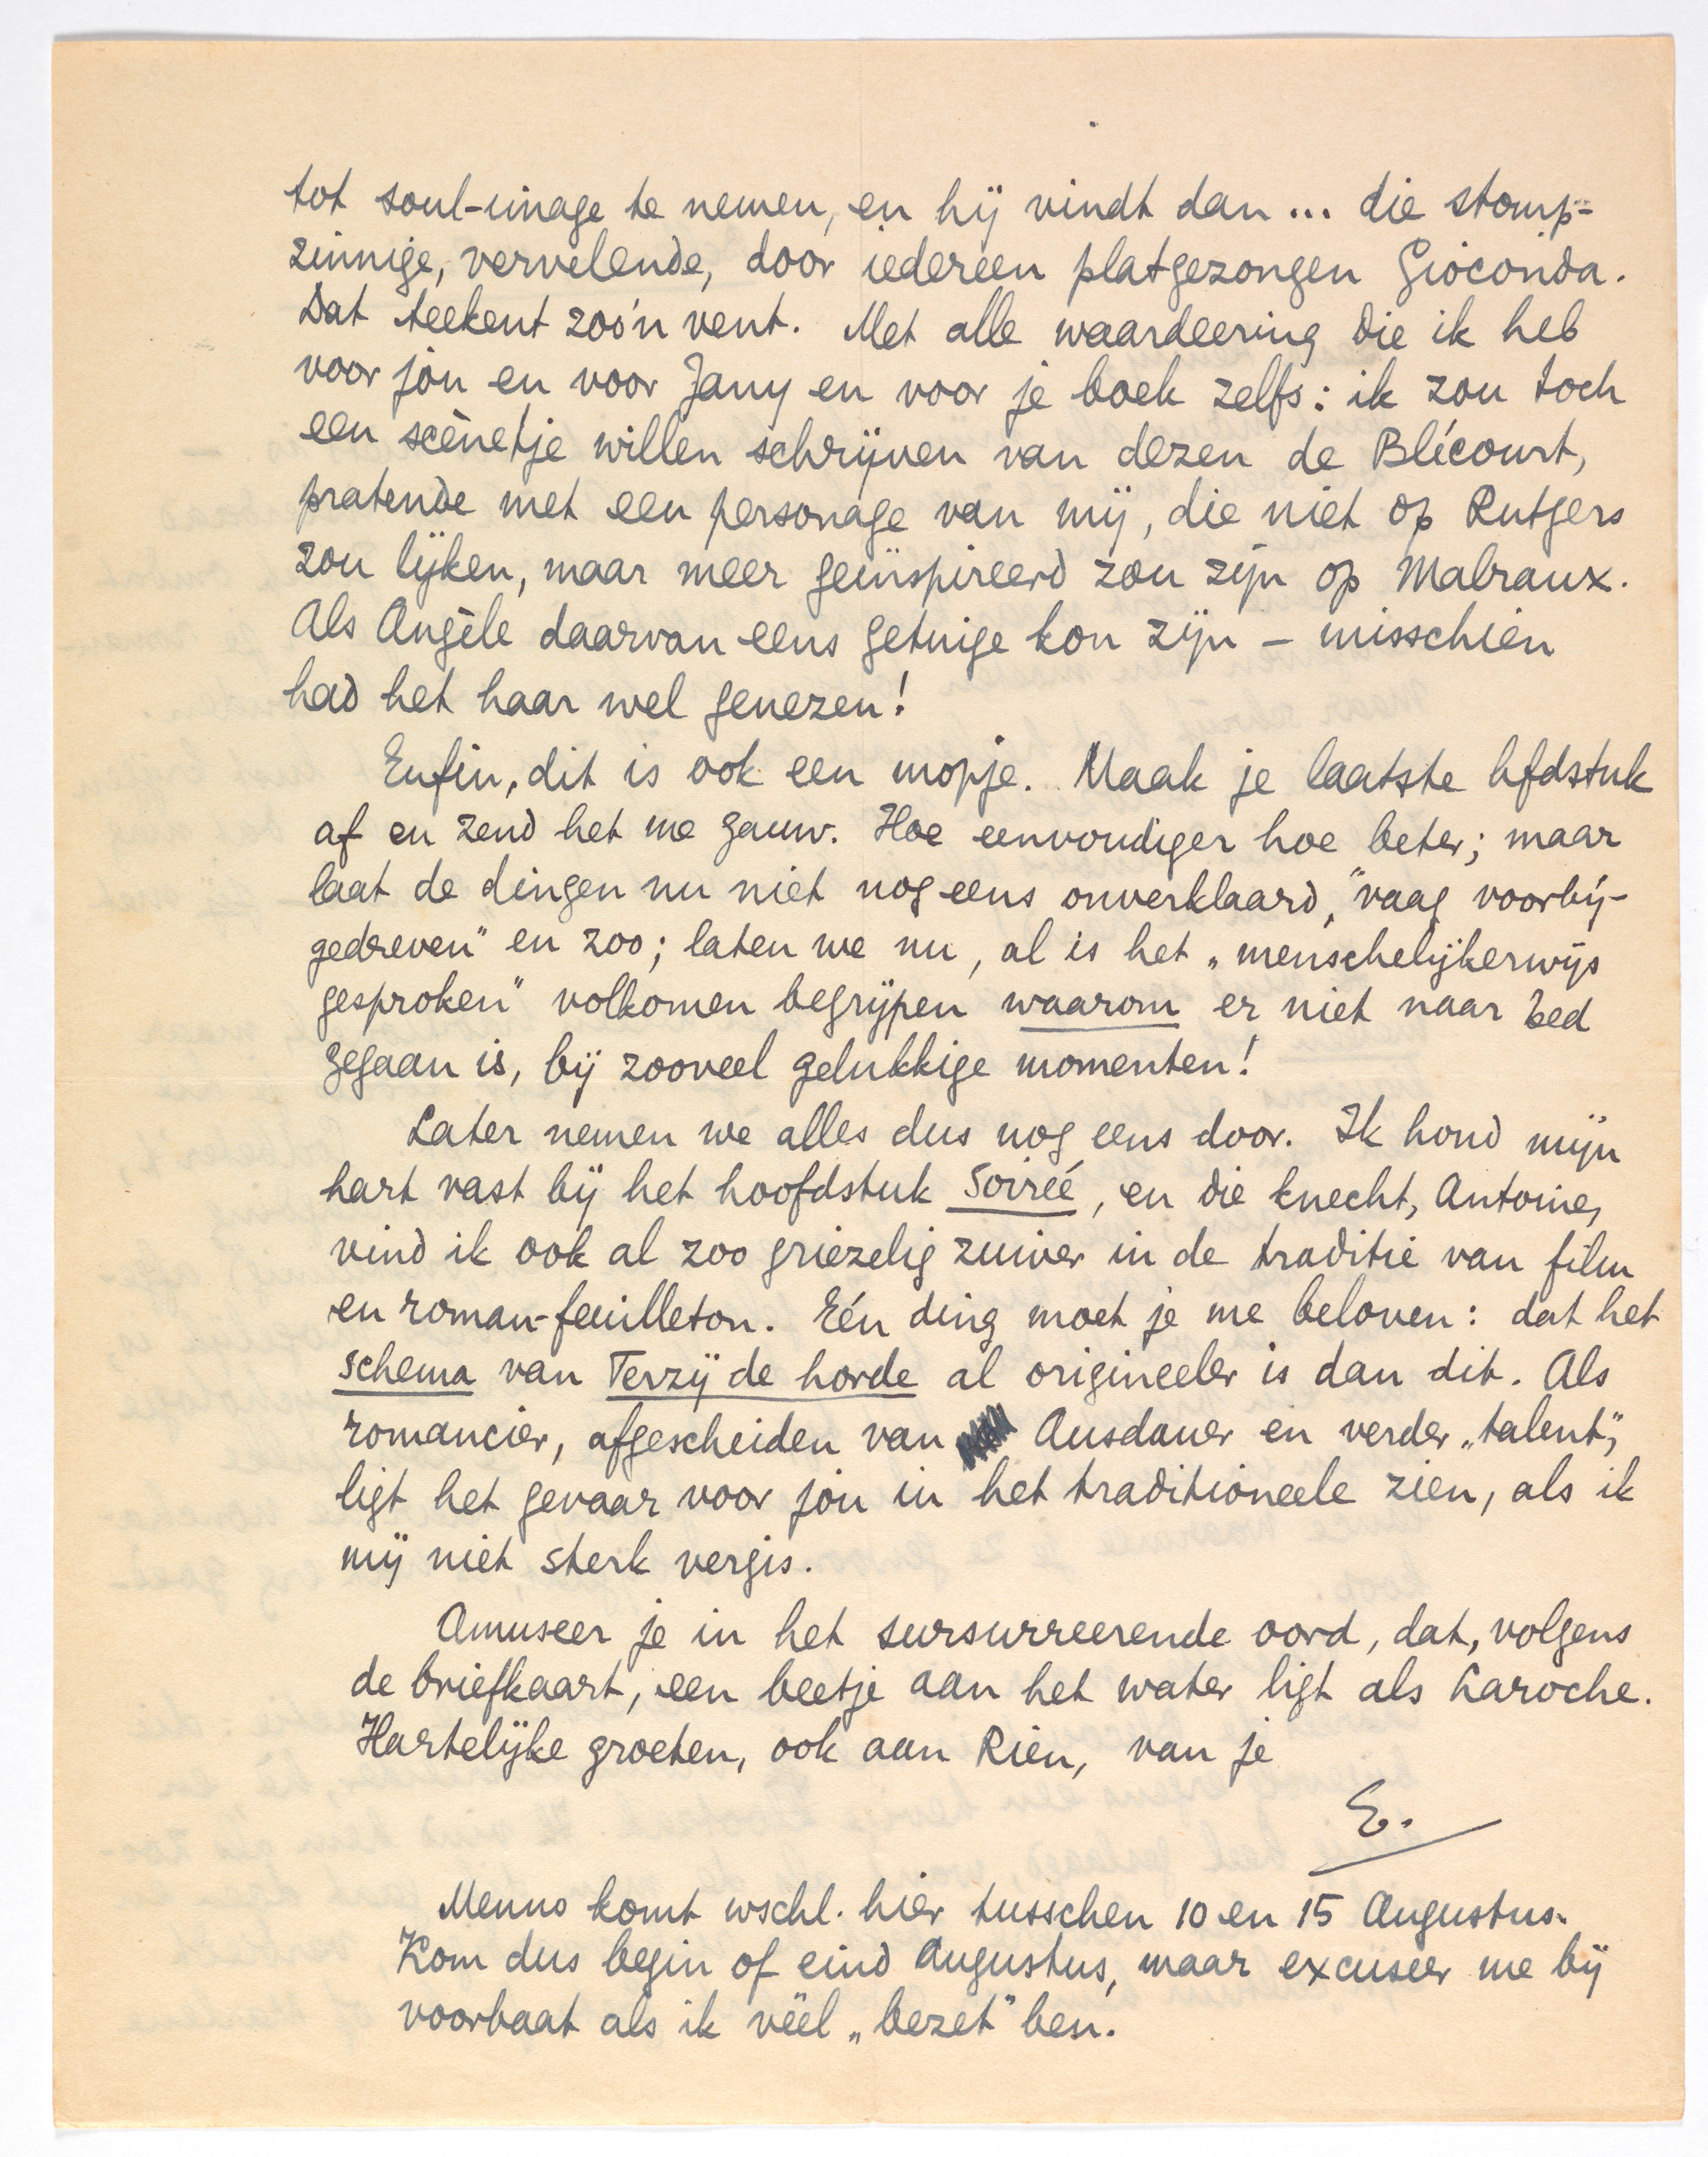 tot soul-image te nemen, en hij vindt dan ... die stomp-
zinnige, vervelende, door iedereen platgezongen Gioconda.
Dat teekent zoo'n vent. Met alle waardeering die ik heb
voor jou en voor Jany en voor je boek zelfs: ik zou toch
een scènetje willen schrijven van dezen de Blécourt,
pratende met een personage van mij, die niet op Rutgers
zou lijken, maar meer geïnspireerd zou zijn op Malraux.
Als Angèle daarvan eens getuige kon zijn – misschien
had het haar wel genezen!
Enfin, dit is ook een mopje. Maak je laatste hfdstuk
af en zend het me gauw. Hoe eenvoudiger hoe beter; maar
laat de dingen nu niet nog eens onverklaard, "vaag voorbij-
gedreven" en zoo; laten we nu, al is het „menschelijkerwijs
gesproken" volkomen begrijpen waarom er niet naar bed
gegaan is, bij zooveel gelukkige momenten!
Later nemen we alles dus nog eens door. Ik houd mijn
hart vast bij het hoofdstuk Soirée, en die knecht, Antoine,
vind ik ook al zoo griezelig zuiver in de traditie van film
en roman-feuilleton. Eén ding moet je me beloven: dat het
schema van Terzij de horde al origineeler is dan dit. Als
romancier, afgescheiden van Ausdauer en verder „talent",
ligt het gevaar voor jou in het traditioneele zien, als ik
mij niet sterk vergis.
Amuseer je in het sursurreerende oord, dat, volgens
de briefkaart, een beetje aan het water ligt als Laroche.
Hartelijke groeten, ook aan Rien, van je
E.
Menno komt wschl. hier tusschen 10 en 15 Augustus.
Kom dus begin of eind Augustus, maar excuseer me bij
voorbaat als ik véél „bezet" ben.